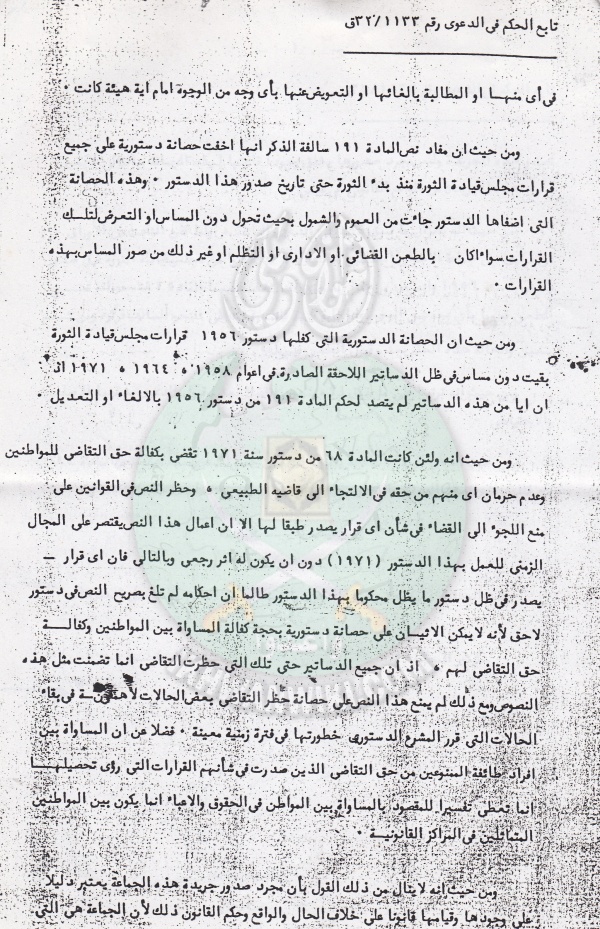 تابع الحكم فى الدعوى رقم ٣٢/١١٣٣ق
فى أى منهــا او المطالبة بالغائها او التعويض عنها بأى وجه من الوجوة امام اية هيئة كانت ٠
ومن حيث ان مفاد نص المادة ١٩١ سالفة الذكر انها اخفت حصانة دستورية على جميع
قرارات مجلس قيادة الثورة منذ بدء الثورة حتى تاريخ صدور هذا الدستور ٠ وهذه الحصانة
التى اضفاها الدستور جاءت من العموم والشمول بحيث تحول دون المساس او التعرض لتلـك
القرارات سواء اكان بالطعن القضائى او الادارى او التظلم او غير ذلك من صور المساس بهذه
القرارات ٠
ومن حيث ان الحصانة الدستورية التى كفلها دستور ١٩٥٦ قرارات مجلس قيادة الثورة
بقيت دون مساس فى ظل الدساتير اللاحقة الصادرة فى اعوام ١٩٥٨ ، ١٩٦٤ ، ١٩٧١ اذ
ان ايا من هذه الدساتير لم يتصد لحكم المادة ١٩١ من دستور ١٩٥٦ بالالغاء او التعديل ٠
ومن حيث انه ولئن كانت المادة ٦٨ من دستور سنة ١٩٧١ تقضى بكفالة حق التقاضى للمواطنين
وعدم حرمان اى منهم من حقه فى الالتجاء الى قاضيه الطبيعى ، وحظر النص فى القوانين على
منع اللجوء الى القضاء فى شأن اى قرار يصدر طبقا لها الا ان اعمال هذا النص يقتصر على المجال
الزمنى للعمل بهذا الدستور (١٩٧١) دون ان يكون له اثر رجعى وبالتالى فان اى قرار ـ
يصدر فى ظل دستور ما يظل محكوما بهذا الدستور طالما ان احكامه لم تلغ بصريح النص فى دستور
لاحق لأنه لا يمكن الاتيان على حصانة دستورية بحجة كفالة المساواة بين المواطنين وكفالــة
حق التقاضى لهم ، اذ ان جميع الدساتير حتى تلك التى حظرت التقاضى انما تضمنت مثل هذه
النصوص ومع ذلك لم يمنع هذا النص على حصانة حظر التقاضى بعض الحالات فى بقاء
الحالات التى قرر المشرع الدستورى خطورتها فى فترة زمنية معينة ٠ فضلا عن ان المساواة بين
افراد طائفة الممنوعين من حق التقاضى الذين صدرت فى شأنهم القرارات التى رؤى تحصيلهـا
انما تعطى تفسيرا للمقصود بالمساواة بين المواطن فى الحقوق والاعباء انما يكون بين المواطنين
المتماثلين فى المراكز القانونيـة ٠
ومن حيث انه لا ينال من ذلك القول بأن مجرد صدور جريدة هذه الجماعة يعتبر دليلا
على وجودها وقيامها قانونا على خلاف الحال والواقع وحكم القانون ذلك لأن الجماعة هى التى